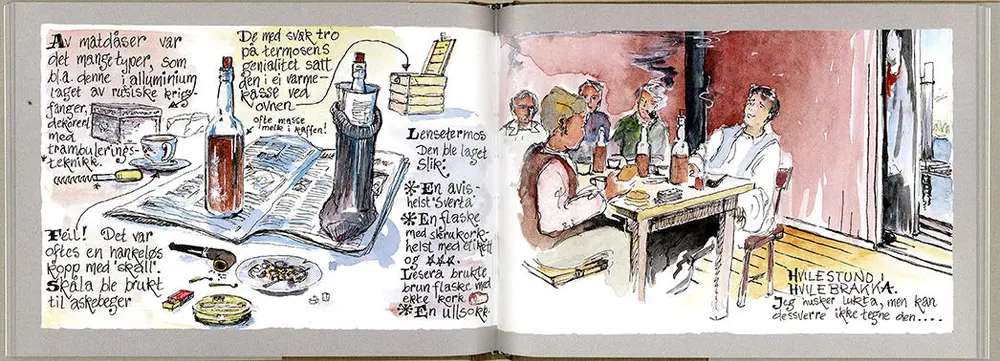 Av matdåser var
det mange typer, som
bl.a. denne i alluminium
laget av rusiske krigs-
fanger,
dekorert
med
trambulerings-
teknikk.
De med svak tro
på termosens
genialitet satt
den i ei varme-
kasse ved
ovnen
ofte masse
melk i kaffen!
Feil! Det var
oftes en hankeløs
kopp med "skåll".
Skåla ble brukt
til askebeger
Lensetermos
Den ble laget
slik:
* En avis-
helst "Sverta"
* En flaske
med skrukork-
helst med etikett
og ***.
Lesera brukte
brun flaske med
ekte kork
* En ullsokk.
HVILESTUND I
HVILEBRAKKA.
Jeg husker lukta, men kan
dessverre ikke tegne den....